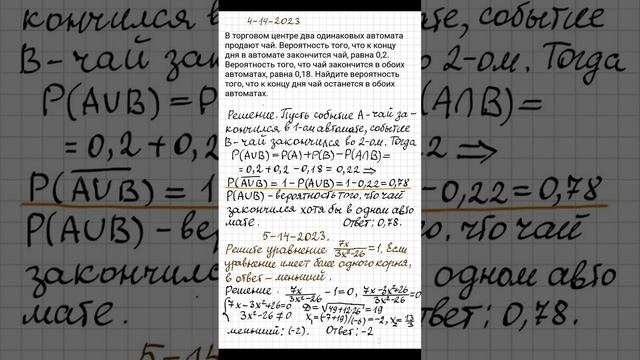 4-14-2023
В торговом центре два одинаковых автомата
продают чай. Вероятность того, что к концу
дня в автомате закончится чай, равна 0,2.
Вероятность того, что чай закончится в обоих
автоматах, равна 0,18. Найдите вероятность
того, что к концу дня чай останется в обоих
автоматах.
Решение. Пусть событие А-чай за-
кончился в 1-ом автомате, событие
В-чай закончился во 2-ом. Тогда
P(A∪B)=P(A)+P(B)-P(A∩B)=
=0,2+0,2-0,18=0,22 ⇒
P(A∪B)‾=1-P(A∪B)=1-0,22=0,78
P(A∪B)-вероятность того, что чай
закончился хотя бы в одном авто
мате. Ответ: 0,78.
5-14-2023.
Решите уравнение 7x/(3x²-26)=1, Если
уравнение имеет более одного корня,
в ответ - меньший.
Решение. 7x/(3x²-26)-1=0, (7x-3x²+26)/(3x²-26)=0
{7x-3x²+26=0 D=√(49+12·26)=19
3x²-26≠0 x₁=(-7+19)/(-6)=-2, x₂=13/3
меньший: (-2). Ответ: -2